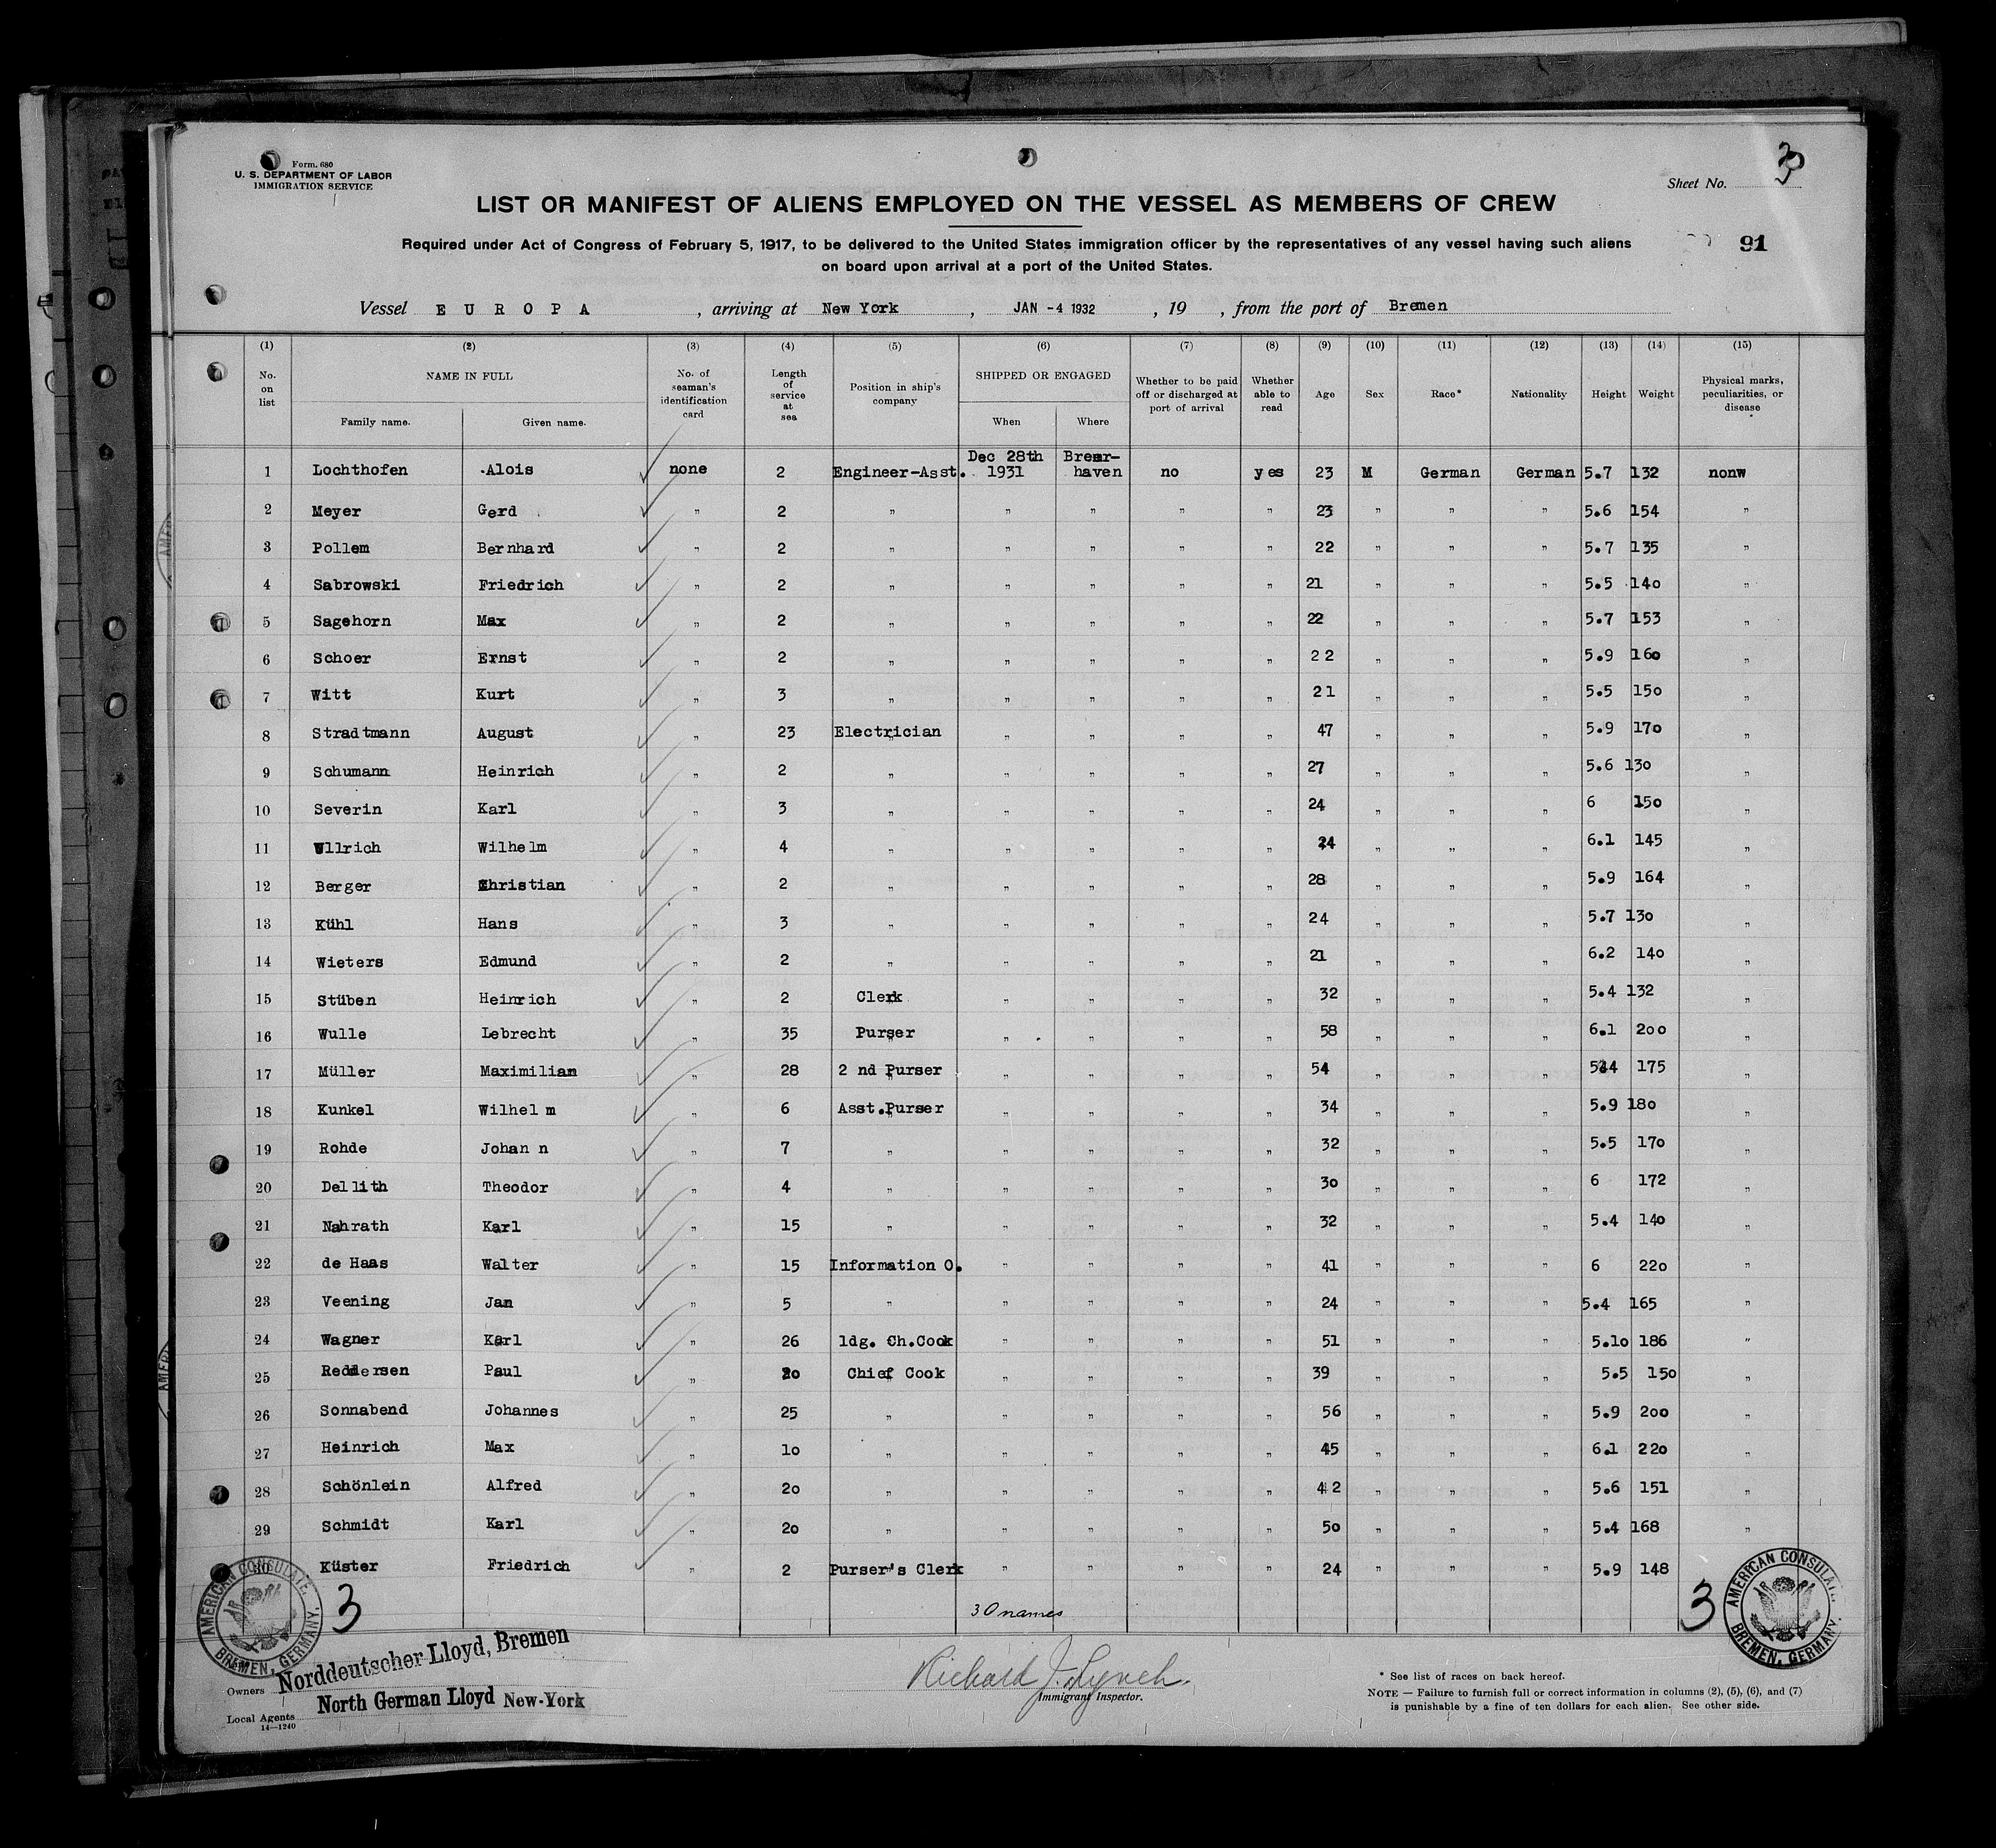 Form. 680
U. S. DEPARTMENT OF LABOR
IMMIGRATION SERVICE
Sheet No. 3
LIST OR MANIFEST OF ALIENS EMPLOYED ON THE VESSEL AS MEMBERS OF CREW
Required under Act of Congress of February 5, 1917, to be delivered to the United States immigration officer by the representatives of any vessel having such aliens
on board upon arrival at a port of the United States.
91
Vessel E U R O P A , arriving at New York , JAN -4 1932 , 19 , from the port of Bremen
(1) (2) (3) (4) (5) (6) (7) (8) (9) (10) (11) (12) (13) (14) (15)
No. on list NAME IN FULL Family name. Given name. No. of seaman's identification card Length of service at sea Position in ship's company SHIPPED OR ENGAGED When Where Whether to be paid off or discharged at port of arrival Whether able to read Age Sex Race* Nationality Height Weight Physical marks, peculiarities, or disease
1 Lochthofen Alois none 2 Engineer-Asst. Dec 28th 1931 Bremerhaven no yes 23 M German German 5.7 132 nonw
2 Meyer Gerd " 2 " " " " " 23 " " " 5.6 154 "
3 Pollem Bernhard " 2 " " " " " 22 " " " 5.7 135 "
4 Sabrowski Friedrich " 2 " " " " " 21 " " " 5.5 140 "
5 Sagehorn Max " 2 " " " " " 22 " " " 5.7 153 "
6 Schoer Ernst " 2 " " " " " 22 " " " 5.9 160 "
7 Witt Kurt " 3 " " " " " 21 " " " 5.5 150 "
8 Stradtmann August " 23 Electrician " " " " 47 " " " 5.9 170 "
9 Schumann Heinrich " 2 " " " " " 27 " " " 5.6 130 "
10 Severin Karl " 3 " " " " " 24 " " " 6 150 "
11 Ullrich Wilhelm " 4 " " " " " 24 " " " 6.1 145 "
12 Berger Christian " 2 " " " " " 28 " " " 5.9 164 "
13 Kühl Hans " 3 " " " " " 24 " " " 5.7 130 "
14 Wieters Edmund " 2 " " " " " 21 " " " 6.2 140 "
15 Stüben Heinrich " 2 Clerk " " " " 32 " " " 5.4 132 "
16 Wulle Lebrecht " 35 Purser " " " " 58 " " " 6.1 200 "
17 Müller Maximilian " 28 2 nd Purser " " " " 54 " " " 5.4 175 "
18 Kunkel Wilhelm " 6 Asst.Purser " " " " 34 " " " 5.9 180 "
19 Rohde Johann " 7 " " " " " 32 " " " 5.5 170 "
20 Dellith Theodor " 4 " " " " " 30 " " " 6 172 "
21 Nahrath Karl " 15 " " " " " 32 " " " 5.4 140 "
22 de Haas Walter " 15 Information O. " " " " 41 " " " 6 220 "
23 Veening Jan " 5 " " " " " 24 " " " 5.4 165 "
24 Wagner Karl " 26 ldg. Ch.Cook " " " " 51 " " " 5.10 186 "
25 Reddersen Paul " 20 Chief Cook " " " " 39 " " " 5.5 150 "
26 Sonnabend Johannes " 25 " " " " " 56 " " " 5.9 200 "
27 Heinrich Max " 10 " " " " " 45 " " " 6.1 220 "
28 Schönlein Alfred " 20 " " " " " 42 " " " 5.6 151 "
29 Schmidt Karl " 20 " " " " " 50 " " " 5.4 168 "
30 Küster Friedrich " 2 Purser's Clerk " " " " 24 " " " 5.9 148
3 30 names 3
AMERICAN CONSULATE, BREMEN, GERMANY.
AMERICAN CONSULATE, BREMEN, GERMANY.
Owners Norddeutscher Lloyd, Bremen
Local Agents North German Lloyd New-York
14—1240
Richard J. Lynch.
Immigrant Inspector.
* See list of races on back hereof.
NOTE — Failure to furnish full or correct information in columns (2), (5), (6), and (7)
is punishable by a fine of ten dollars for each alien. See other side.